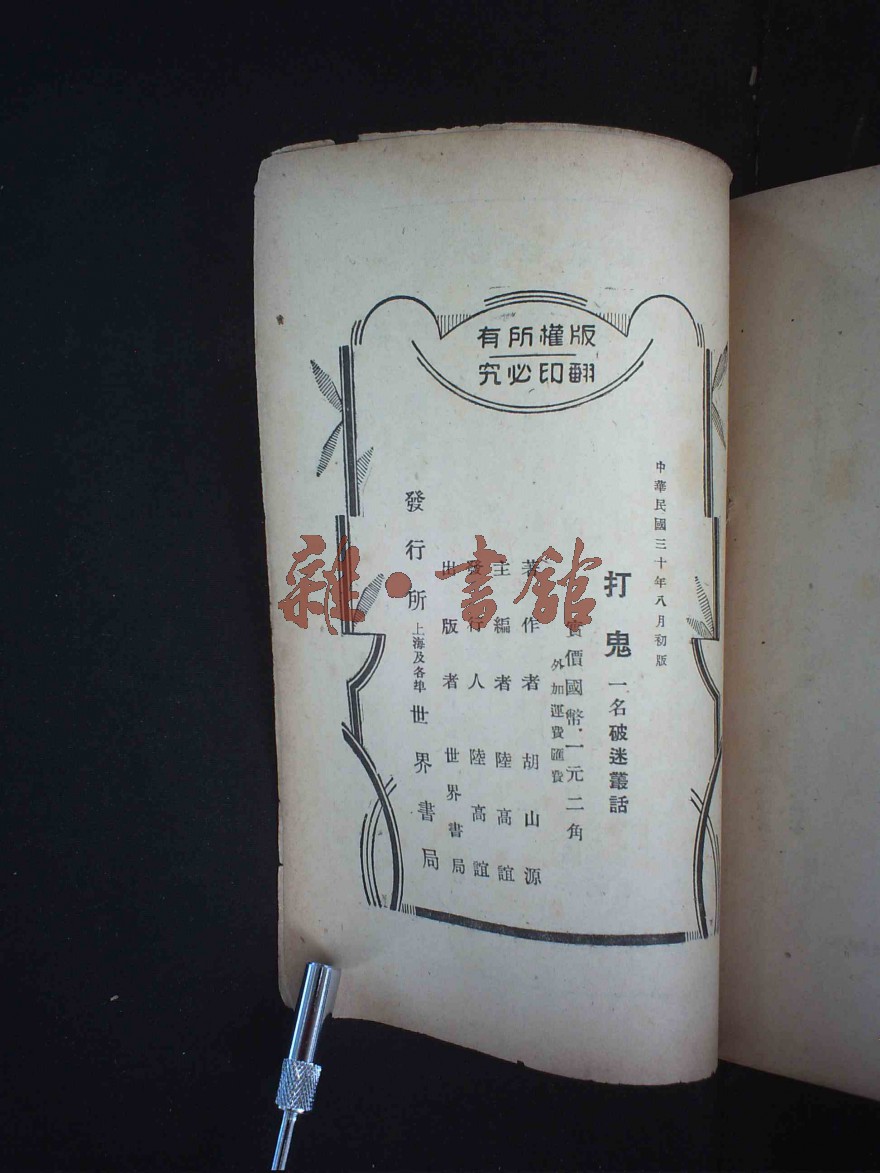 版權所有
翻印必究
中華民國三十年八月初版
打鬼 一名破迷叢話
實價國幣·一元二角
外加運費匯費
著作者 胡山源
主編者 陸高誼
發行人 陸高誼
出版者 世界書局
發行所 上海及各埠 世界書局
雜·書館